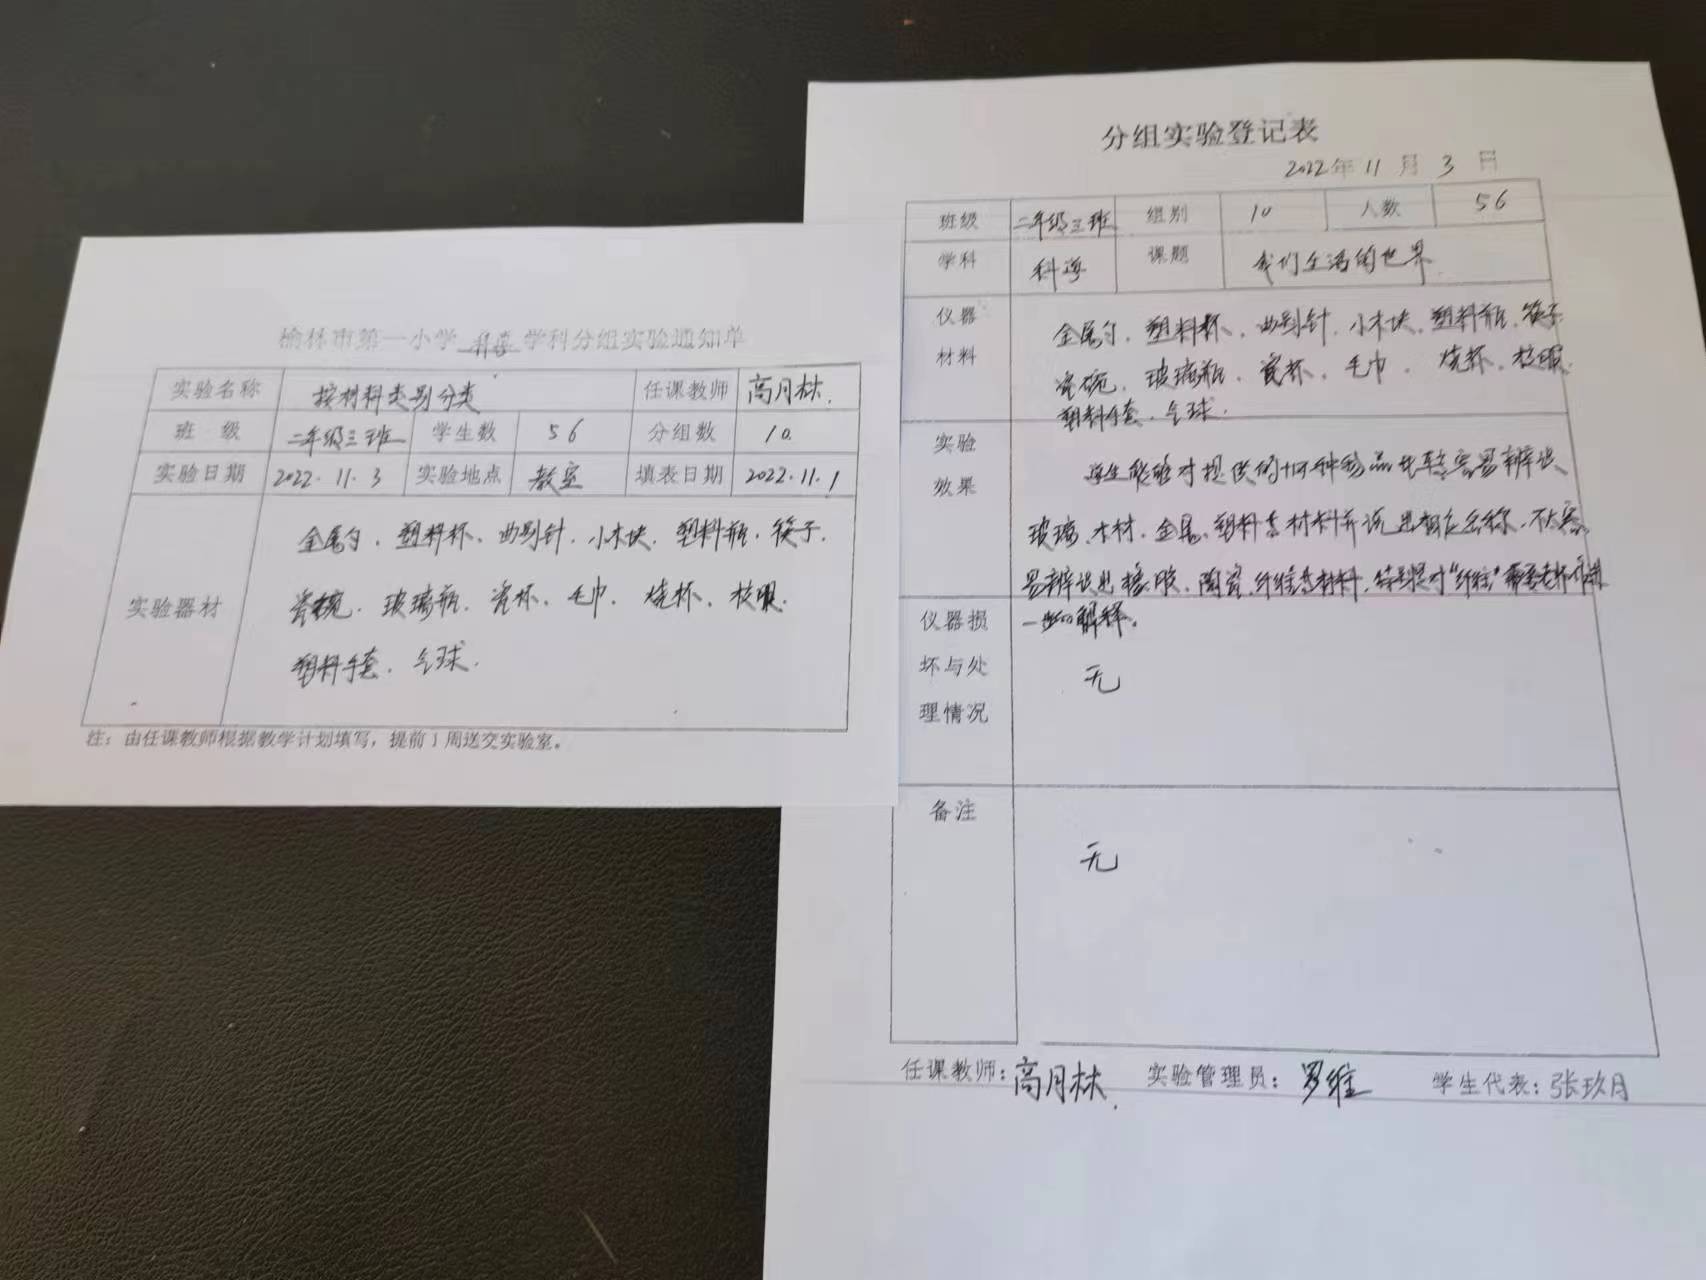 榆林市第一小学 科学 学科分组实验通知单
实验名称 按材料类别分类 任课教师 高月林.
班 级 二年级三班 学生数 56 分组数 10.
实验日期 2022.11.3 实验地点 教室 填表日期 2022.11.1
实验器材
金属勺、塑料杯、曲别针、小木块、塑料瓶、筷子、
瓷碗、玻璃瓶、瓷杯、毛巾、烧杯、
塑料手套、气球.
注：由任课教师根据教学计划填写，提前1周送交实验室。
分组实验登记表
2022年11月3日
班级 二年级三班 组别 10 人数 56
学科 科学 课题 我们生活的世界
仪器材料
金属勺、塑料杯、曲别针、小木块、塑料瓶、筷子、
瓷碗、玻璃瓶、瓷杯、毛巾、烧杯、
塑料手套、气球.
实验效果
学生能够对提供的十四种物品比较容易辨识
玻璃、木材、金属、塑料等材料并说出相应名称，不太容
易辨识出橡胶、陶瓷、纤维等材料，特别是对“纤维”需要老师作进
一步的解释。
仪器损坏与处理情况
无
备注
无
任课教师：高月林. 实验管理员：罗维 学生代表：张玖月